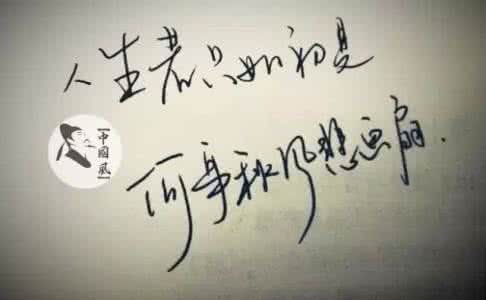 人生若只如初见
何事秋风悲画扇.
【中國風】